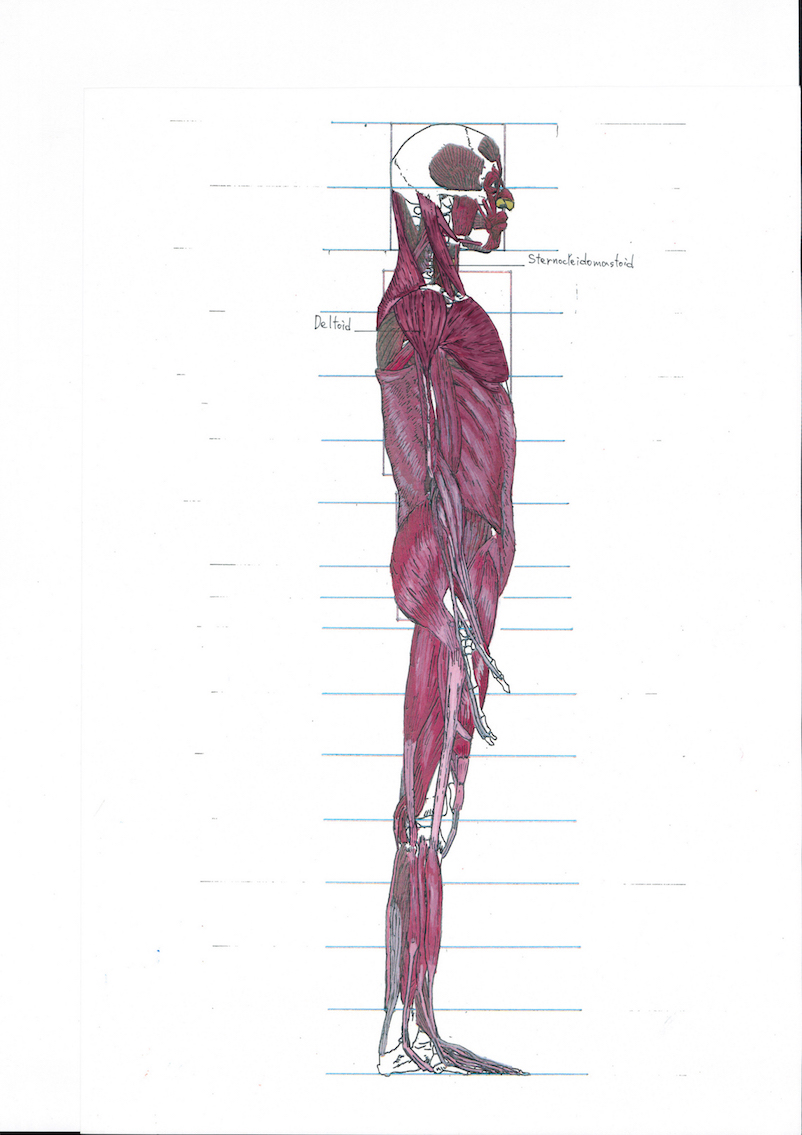 Sternocleidomastoid
Deltoid